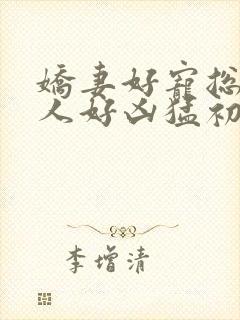 嬌妻好寵總
人好凶猛初
李增清